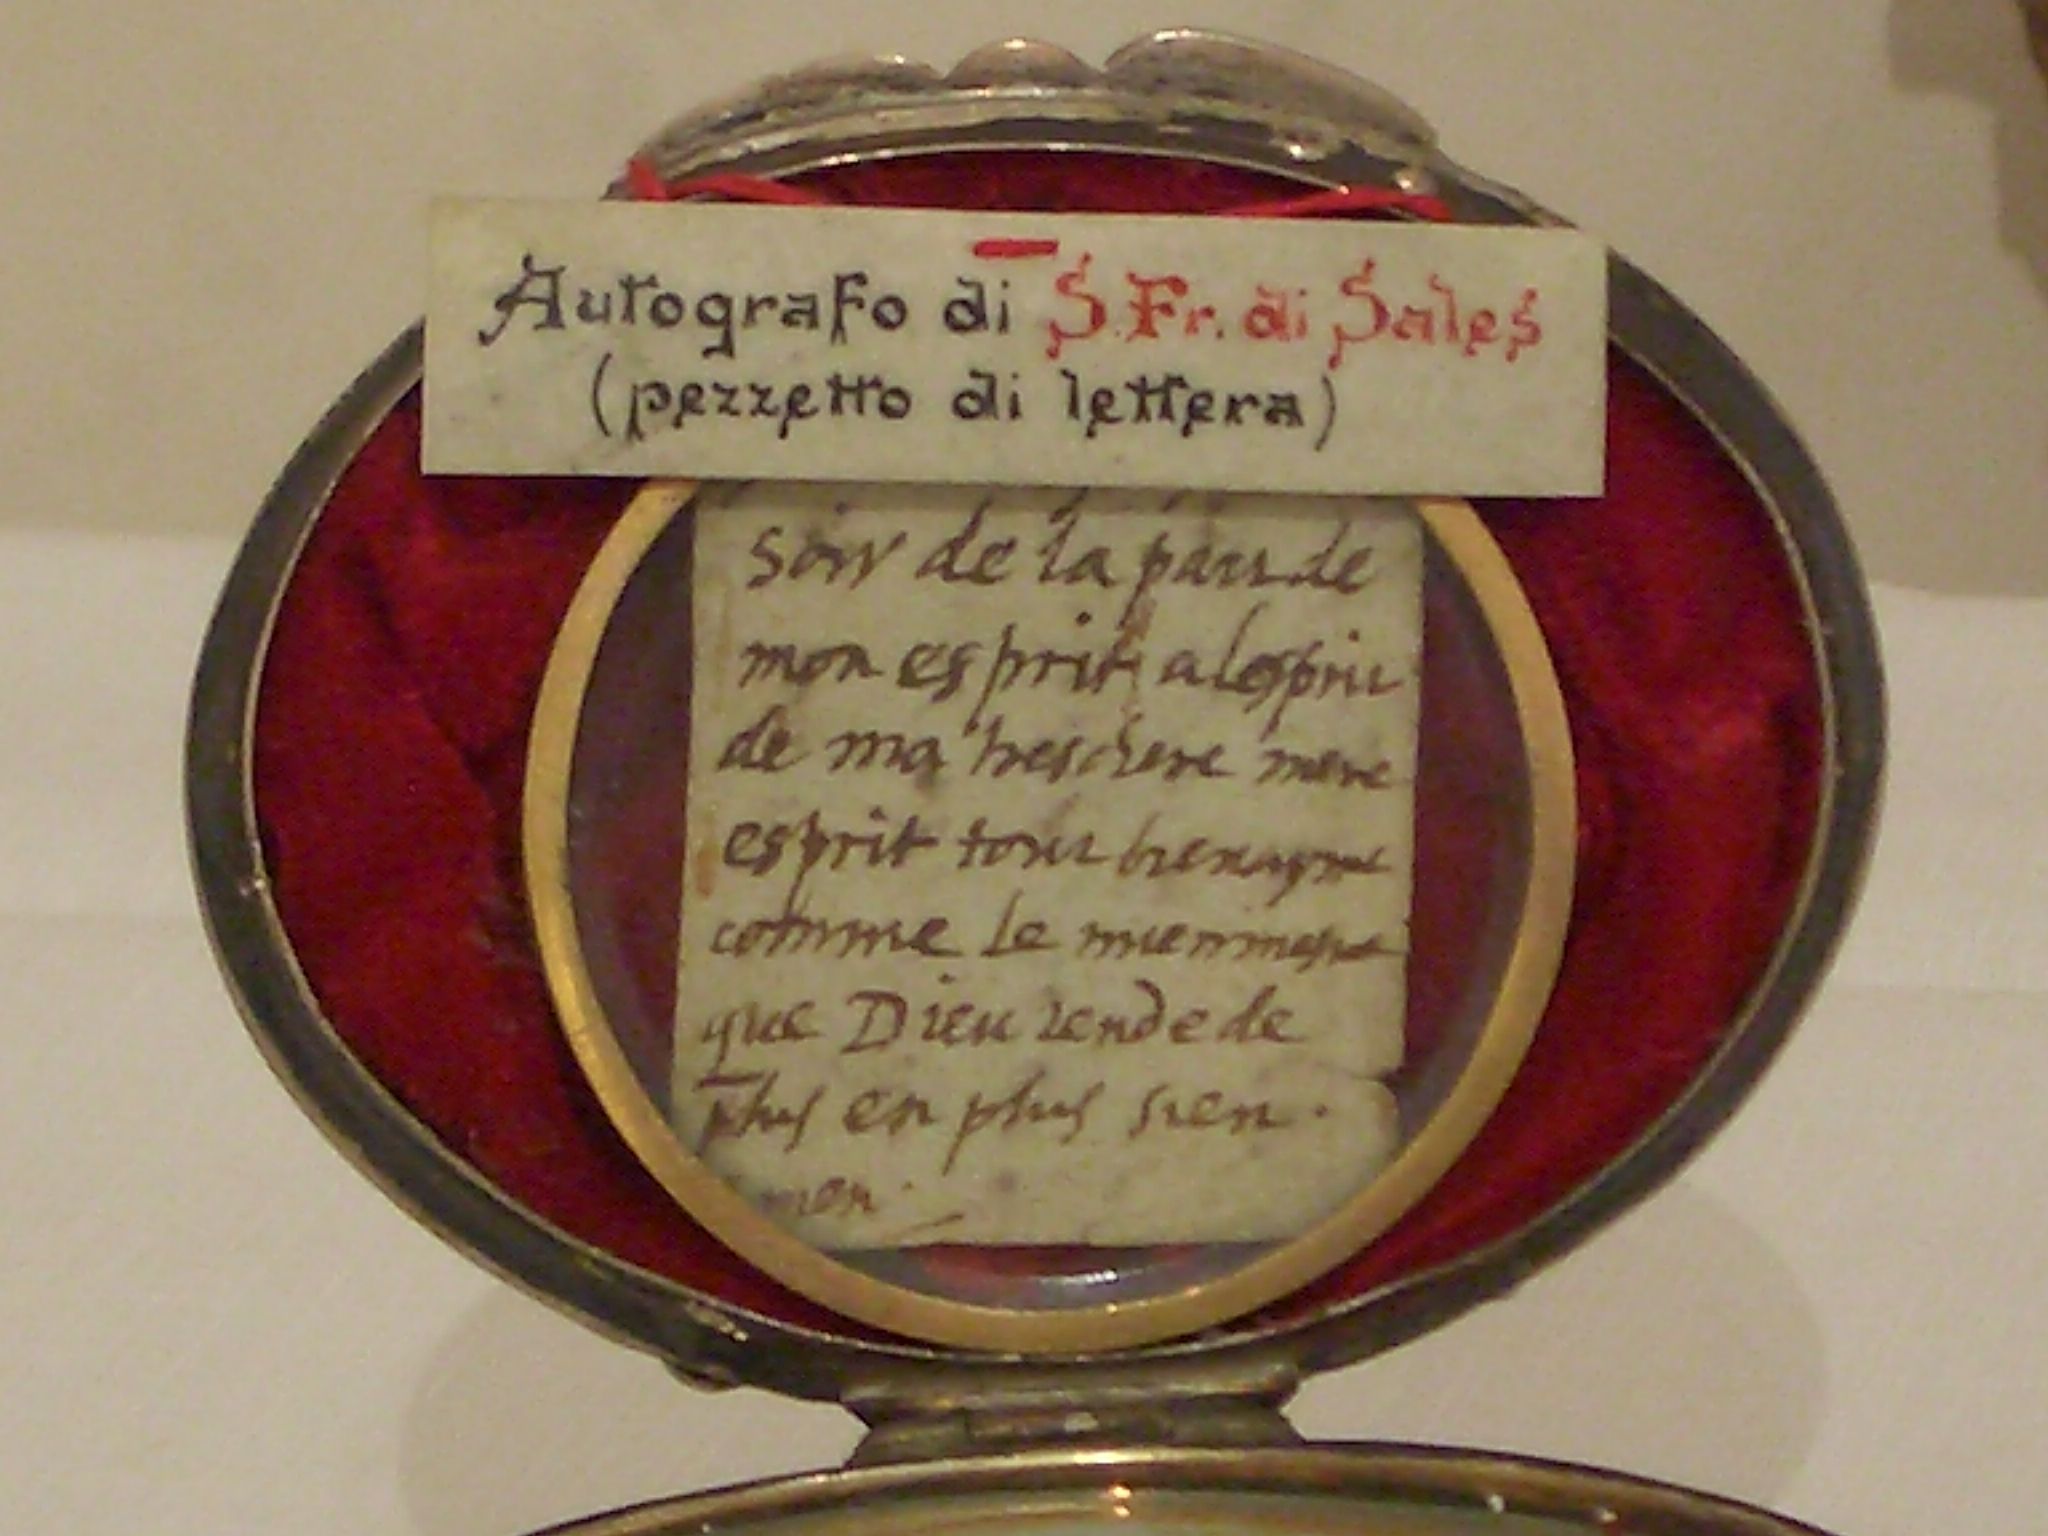 Autografo di S. Fr. di Sales
(pezzetto di lettera)
soir de la part de
mon esprit a lesprit
de ma treschere mere
esprit tout
comme le
que Dieu rende de
plus en plus sien.